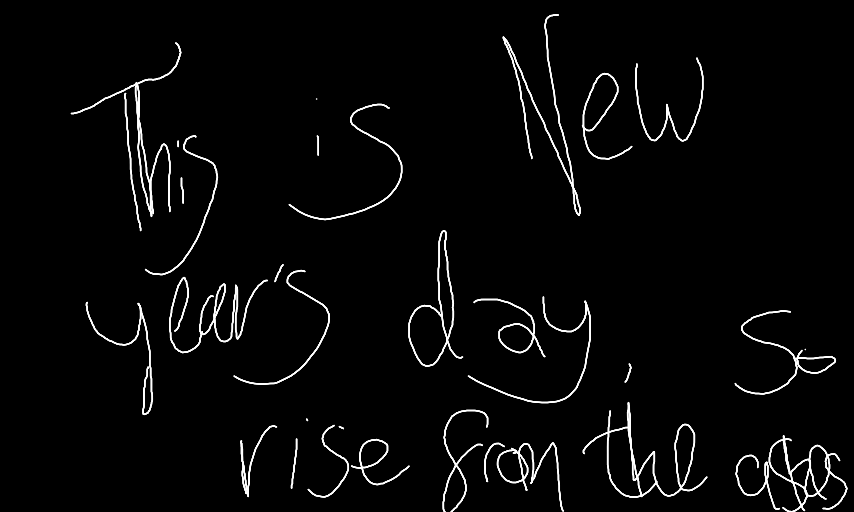 This is New
year's day, so
rise from the ashes